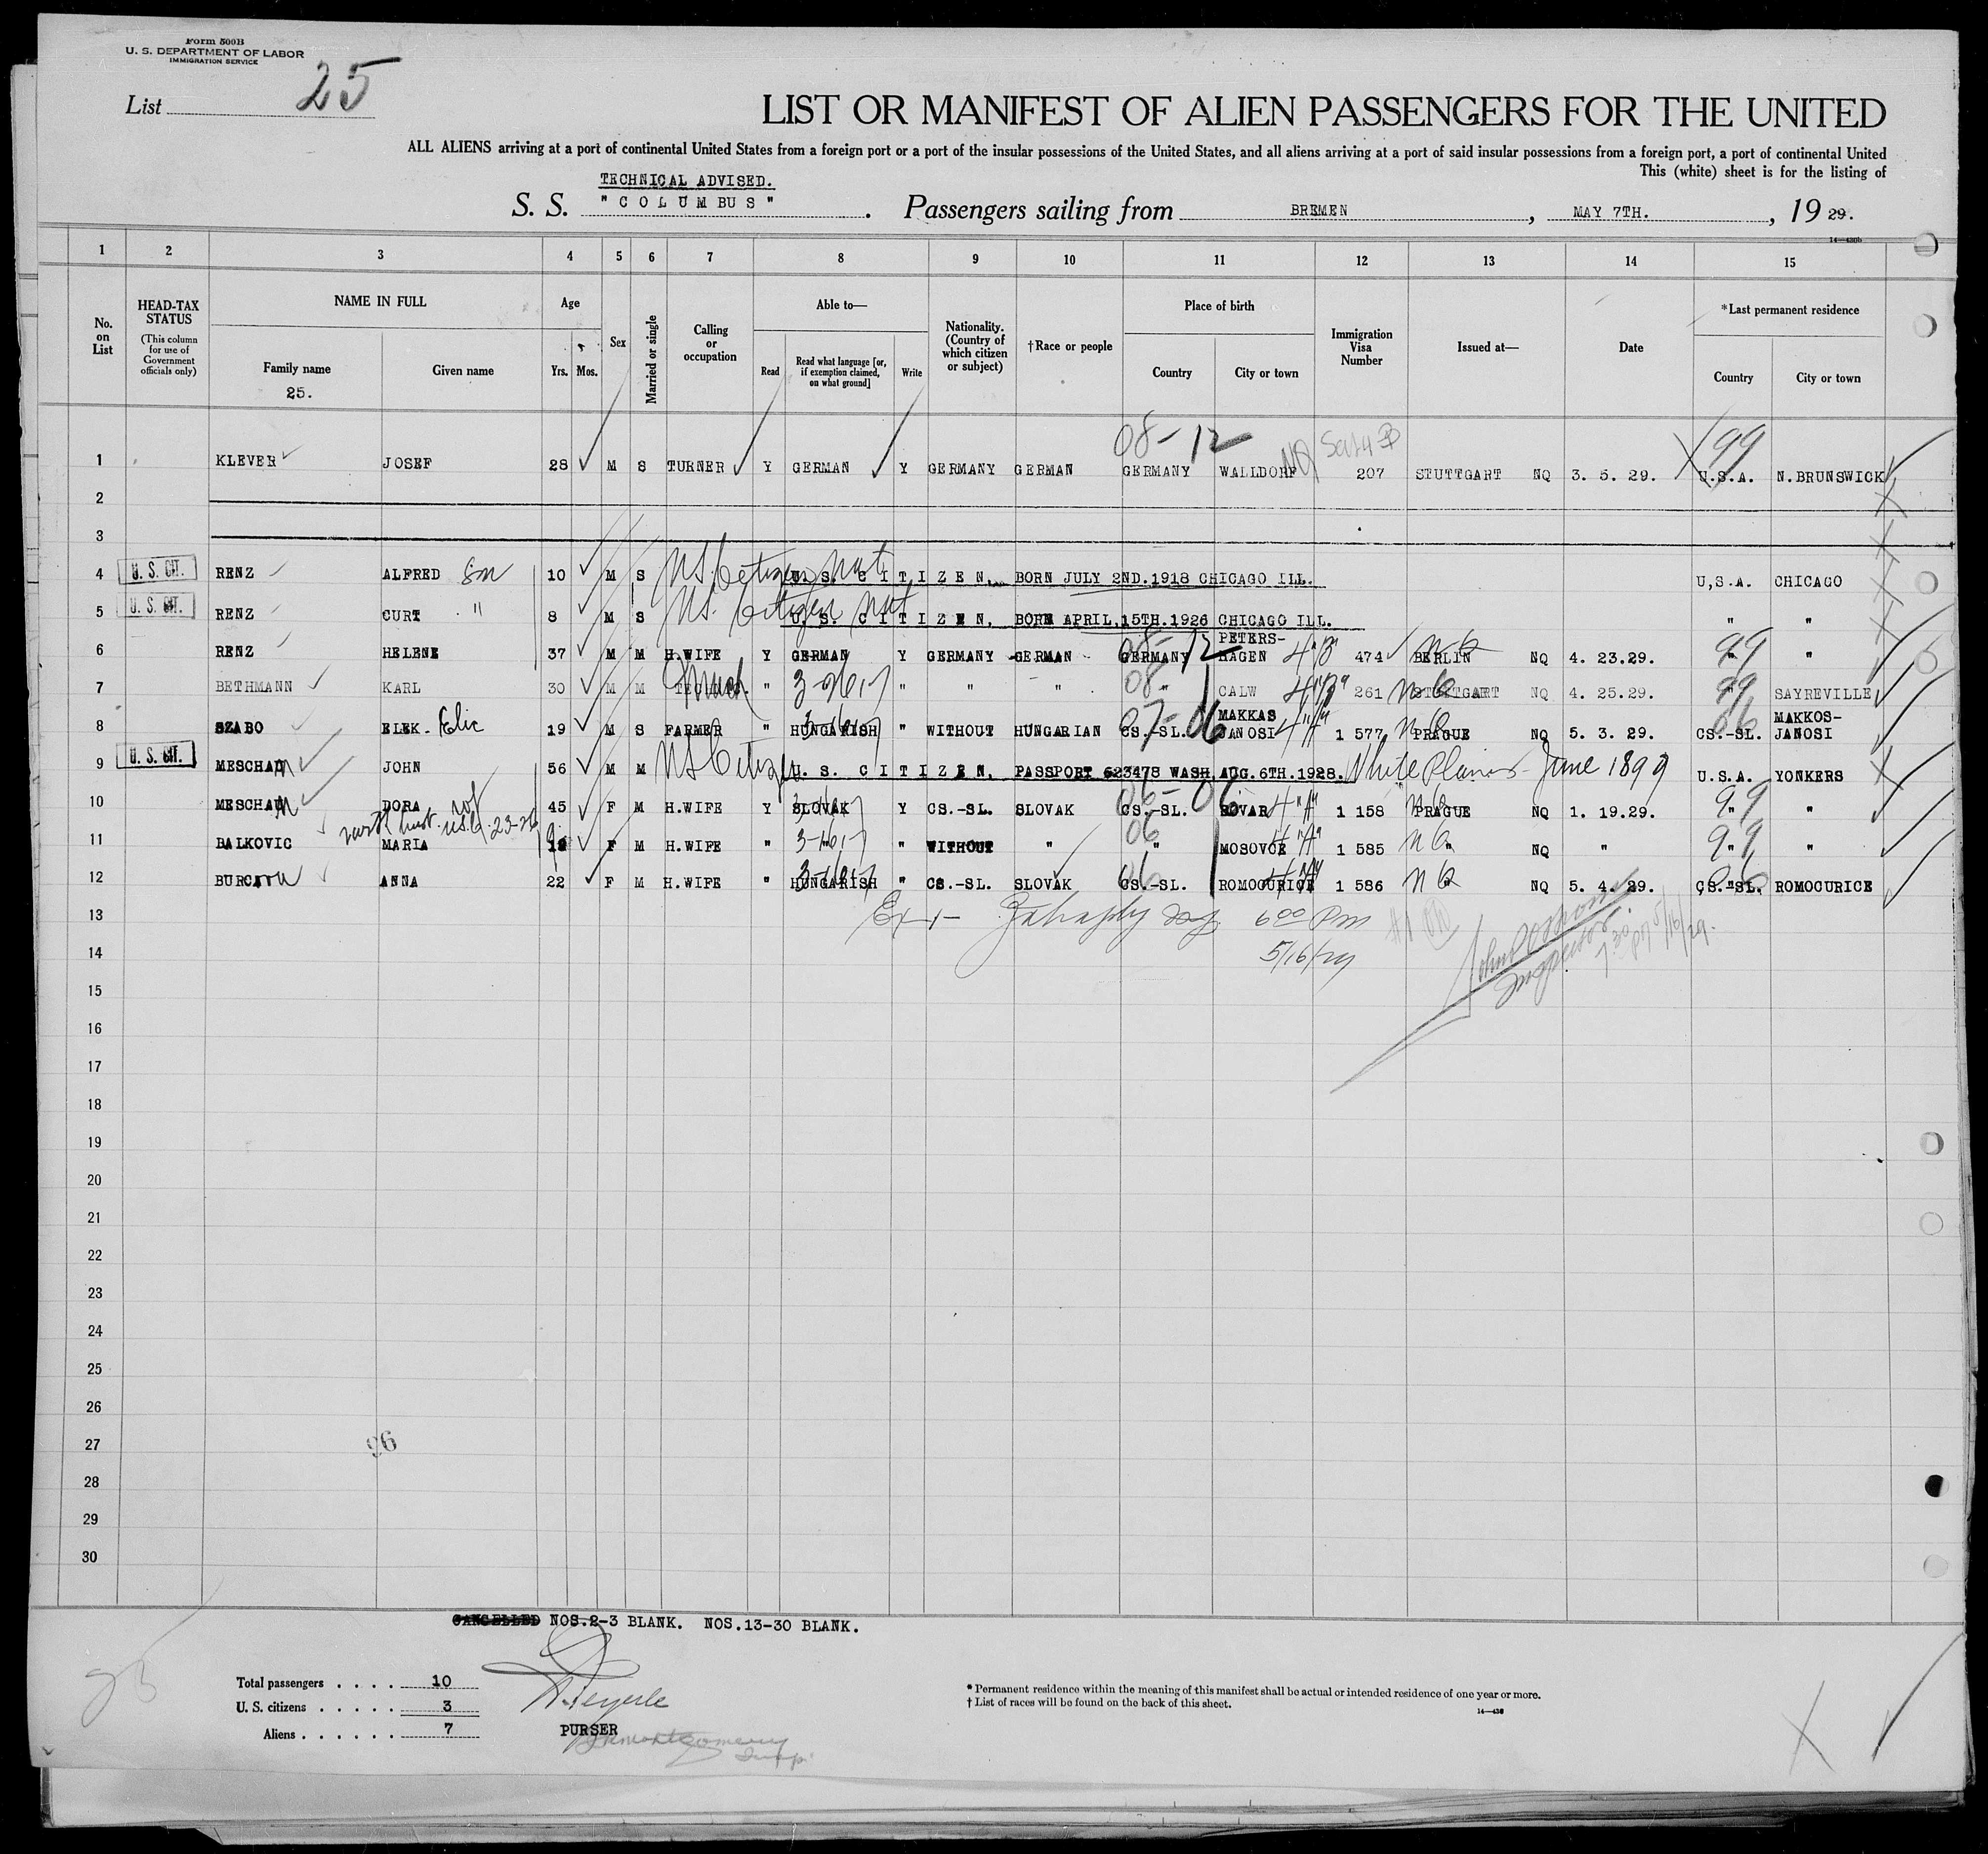 Form 500B
U. S. DEPARTMENT OF LABOR
IMMIGRATION SERVICE
List 25
LIST OR MANIFEST OF ALIEN PASSENGERS FOR THE UNITED
ALL ALIENS arriving at a port of continental United States from a foreign port or a port of the insular possessions of the United States, and all aliens arriving at a port of said insular possessions from a foreign port, a port of continental United
This (white) sheet is for the listing of
TECHNICAL ADVISED.
S. S. "COLUMBUS". Passengers sailing from BREMEN, MAY 7TH., 19 29.
14—430b
1 2 3 4 5 6 7 8 9 10 11 12 13 14 15
No. on List
HEAD-TAX STATUS
(This column for use of Government officials only)
NAME IN FULL
Family name
25.
Given name
Age
Yrs. Mos.
Sex
Married or single
Calling or occupation
Able to—
Read
Read what language [or, if exemption claimed, on what ground]
Write
Nationality. (Country of which citizen or subject)
†Race or people
Place of birth
Country
City or town
Immigration Visa Number
Issued at—
Date
*Last permanent residence
Country
City or town
08-12 99
1 KLEVER JOSEF 28 M S TURNER Y GERMAN Y GERMANY GERMAN GERMANY WALLDORF 207 STUTTGART NQ 3. 5. 29. U.S.A. N.BRUNSWICK
2
3
4 U. S. CIT. RENZ ALFRED Son 10 M S US. Citizen Nat U. S. CITIZEN, BORN JULY 2ND.1918 CHICAGO ILL. U,S.A. CHICAGO
5 U. S. CIT. RENZ CURT " 8 M S US. Citizen Nat U. S. CITIZEN, BORN APRIL,15TH.1926 CHICAGO ILL. " "
6 RENZ HELENE 37 M M H.WIFE Y GERMAN Y GERMANY GERMAN 08-12 GERMANY PETERS-HAGEN 474 BERLIN NQ 4. 23.29. 99 " "
7 BETHMANN KARL 30 M M " " " " 08 " CALW 261 STUTTGART NQ 4. 25.29. 99 " SAYREVILLE
8 SZABO ELEK. Elic 19 M S FARMER " HUNGARISH " WITHOUT HUNGARIAN 07-06 CS.-SL. MAKKAS JANOSI 1 577 PRAGUE NQ 5. 3. 29. 06 CS.-SL. MAKKOS-JANOSI
9 U. S. CIT. MESCHAN JOHN 56 M M US Citizen U. S. CITIZEN, PASSPORT 623478 WASH, AUG.6TH.1928. White Plains - June 1899 U.S.A. YONKERS
10 MESCHAN DORA wf 45 F M H.WIFE Y SLOVAK Y CS.-SL. SLOVAK 06-06 CS.-SL. ROVAR 1 158 PRAGUE NQ 1. 19.29. 99 " "
11 BALKOVIC MARIA F M H.WIFE " " " WITHOUT " 06 " MOSOVCE 1 585 " NQ " 99 " "
12 BURCIN ANNA 22 F M H.WIFE " HUNGARISH " CS.-SL. SLOVAK 06 CS.-SL. ROMOCURICE 1 586 " NQ 5. 4. 29. 06 CS.-SL. ROMOCURICE
13 6 00 Pm
14 5/16/29
15
16
17
18
19
20
21
22
23
24
25
26
27
96
28
29
30
CANCELLED NOS.2-3 BLANK. NOS.13-30 BLANK.
Total passengers . . . . 10
U. S. citizens . . . . . 3
Aliens . . . . . . 7
PURSER
* Permanent residence within the meaning of this manifest shall be actual or intended residence of one year or more.
† List of races will be found on the back of this sheet.
14—430